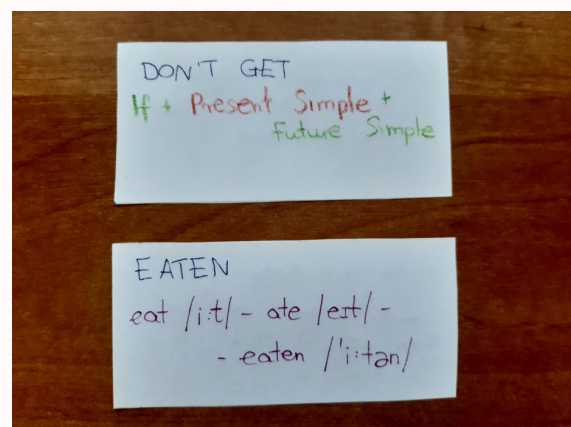 DON'T GET
If + Present Simple +
Future Simple
EATEN
eat /i:t/ - ate /eɪt/ -
- eaten /'i:tən/